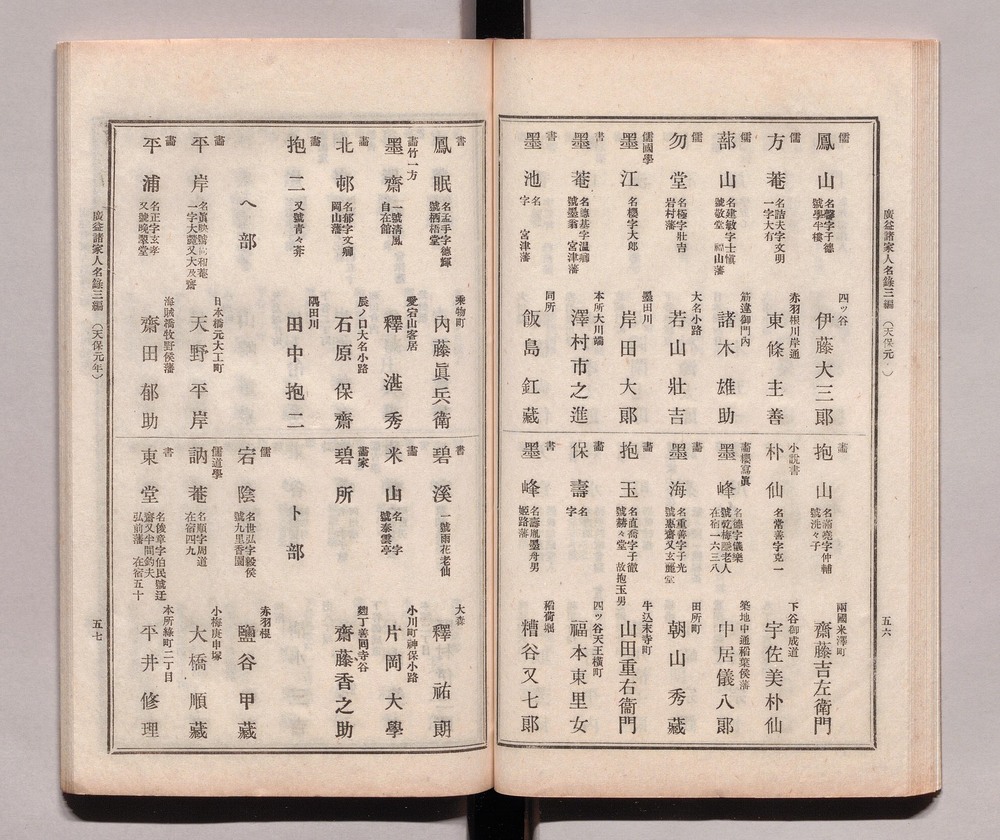 廣益諸家人名錄三編 (天保元 )
儒
鳳山 名馨字子德 號學半樓 四ッ谷 伊藤大三郞
儒
方菴 名詰夫字文明 一字大有 赤羽根川岸通 東條主善
儒
蔀山 名建敏字士愼 號敬堂 福山藩 筋違御門內 諸木雄助
儒
勿堂 名極字壯吉 岩村藩 大名小路 若山壯吉
儒國學
墨江 名櫻字大郞 墨田川 岸田大郞
書
墨菴 名德基字溫 號墨翁 宮津藩 本所大川端 澤村市之進
書
墨池 名 字 宮津藩 同所 飯島釭藏
畵
抱山 名 字仲輔 號洗々子 兩國米澤町 齋藤吉左衞門
小說書
朴仙 名常善字克一 下谷御成道 宇佐美朴仙
畵櫻寫眞
墨峰 名德字儀樂 號乾梅 老人 在宿一六三八 築地中通稲葉侯藩 中居儀八郞
畵
墨海 名重善字子光 號惠齋又玄 堂 田所町 朝山秀藏
畵
抱玉 名直喬字子徹 號赫々堂 故抱玉男 牛込末寺町 山田重右衞門
畵
保壽 名 字 四ッ谷天王橫町 福本東里女
書
墨峰 名壽胤墨舟男 姬路藩 稻荷堀 糟谷又七郞
五六
書
鳳眠 名孟手字德輝 號栖梧堂 乘物町 內藤眞兵衛
畵竹一方
墨齋 一號清風 自在館 愛宕山客居 釋湛秀
畵
北邨 名郁字文 岡山藩 辰ノ口大名小路 石原保齋
畵
抱二 又號靑々 隅田川 田中抱二
ヘ部
畵
平岸 名眞 號 和菴 一字大 又大及齋 日本橋元大工町 天野平岸
畵
平浦 名正字玄孝 又號晚翠堂 海賊橋牧野侯藩 齋田郁助
書
碧溪 一號雨花老仙 大森 釋祐朗
畵
米山 名 字 號泰雲亭 小川町神保小路 片岡大學
畵家
碧所 麹丁善囘寺谷 齋藤香之助
ト部
儒
宕陰 名世弘字毅侯 號九里香園 赤羽根 鹽谷甲藏
儒道學
訥菴 名順字周道 在宿四九 小梅庚申塚 大橋順藏
書
東堂 名俊章字伯民號迂 齋又半間釣夫 弘前藩 在宿五十 本所綠町二丁目 平井修理
廣益諸家人名錄三編 (天保元年)
五七